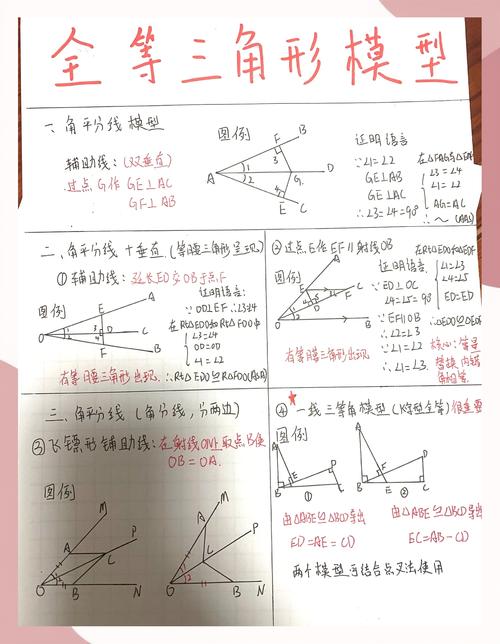 全等三角形模型
一、角平分线模型
辅助线：(双垂直)
过点G作 GE⊥AC
GF⊥AB
图例
A
B
F
1
2
3
4
G
D
E
C
证明语言
∵∠1=∠2
GE⊥AB
GE⊥AC
∴∠3=∠4=90°
在△FAG与△EAF
∠3=∠4
∠1=∠2
AG=AC
∴～ (AAS)
二、角平分线+垂直(等腰三角形呈现)
①辅助线：延长ED交OB于点F
图例
A
E
O
D
C
F
B
证明语言：
∵OD⊥EF ∴∠3=∠4
在Rt△EDO和Rt△FDO中
∠3=∠4
OD=OD
∠1=∠2
有等腰三角形出现.
∴Rt△EDO≌Rt△FDO(ASA)
②过点E作EF∥射线OB
图例
A
E
F
C
D
O
B
证明语言.
∵ED⊥OC
∠4=∠5=90°
∵EF∥OB
∴∠2=∠3
∵∠1=∠2
∴∠1=∠3.
有等腰三角形出现
在Rt△EDO和△EDF
∠1=∠3
∠4=∠5
ED=ED
∴△EDO≌△EDF
核心：等量
替换 内错
角相等.
三、角平分线(角分线，分两边)
③飞镖形辅助线：在射线ON上取点B使
OB=OA.
图例
M
A
C
P
O
B
N
M
A
P
C
O
B
N
④一线三等角模型(K字型全等)很重要
图例
A
E
D
B
C
①
A
F
D
B
E
C
②
由△ABE≌△BCD导出
ED=AE-CD
由△ABE≌△BCD导出
EC=AB-CD
两个模型可结合点叉法使用